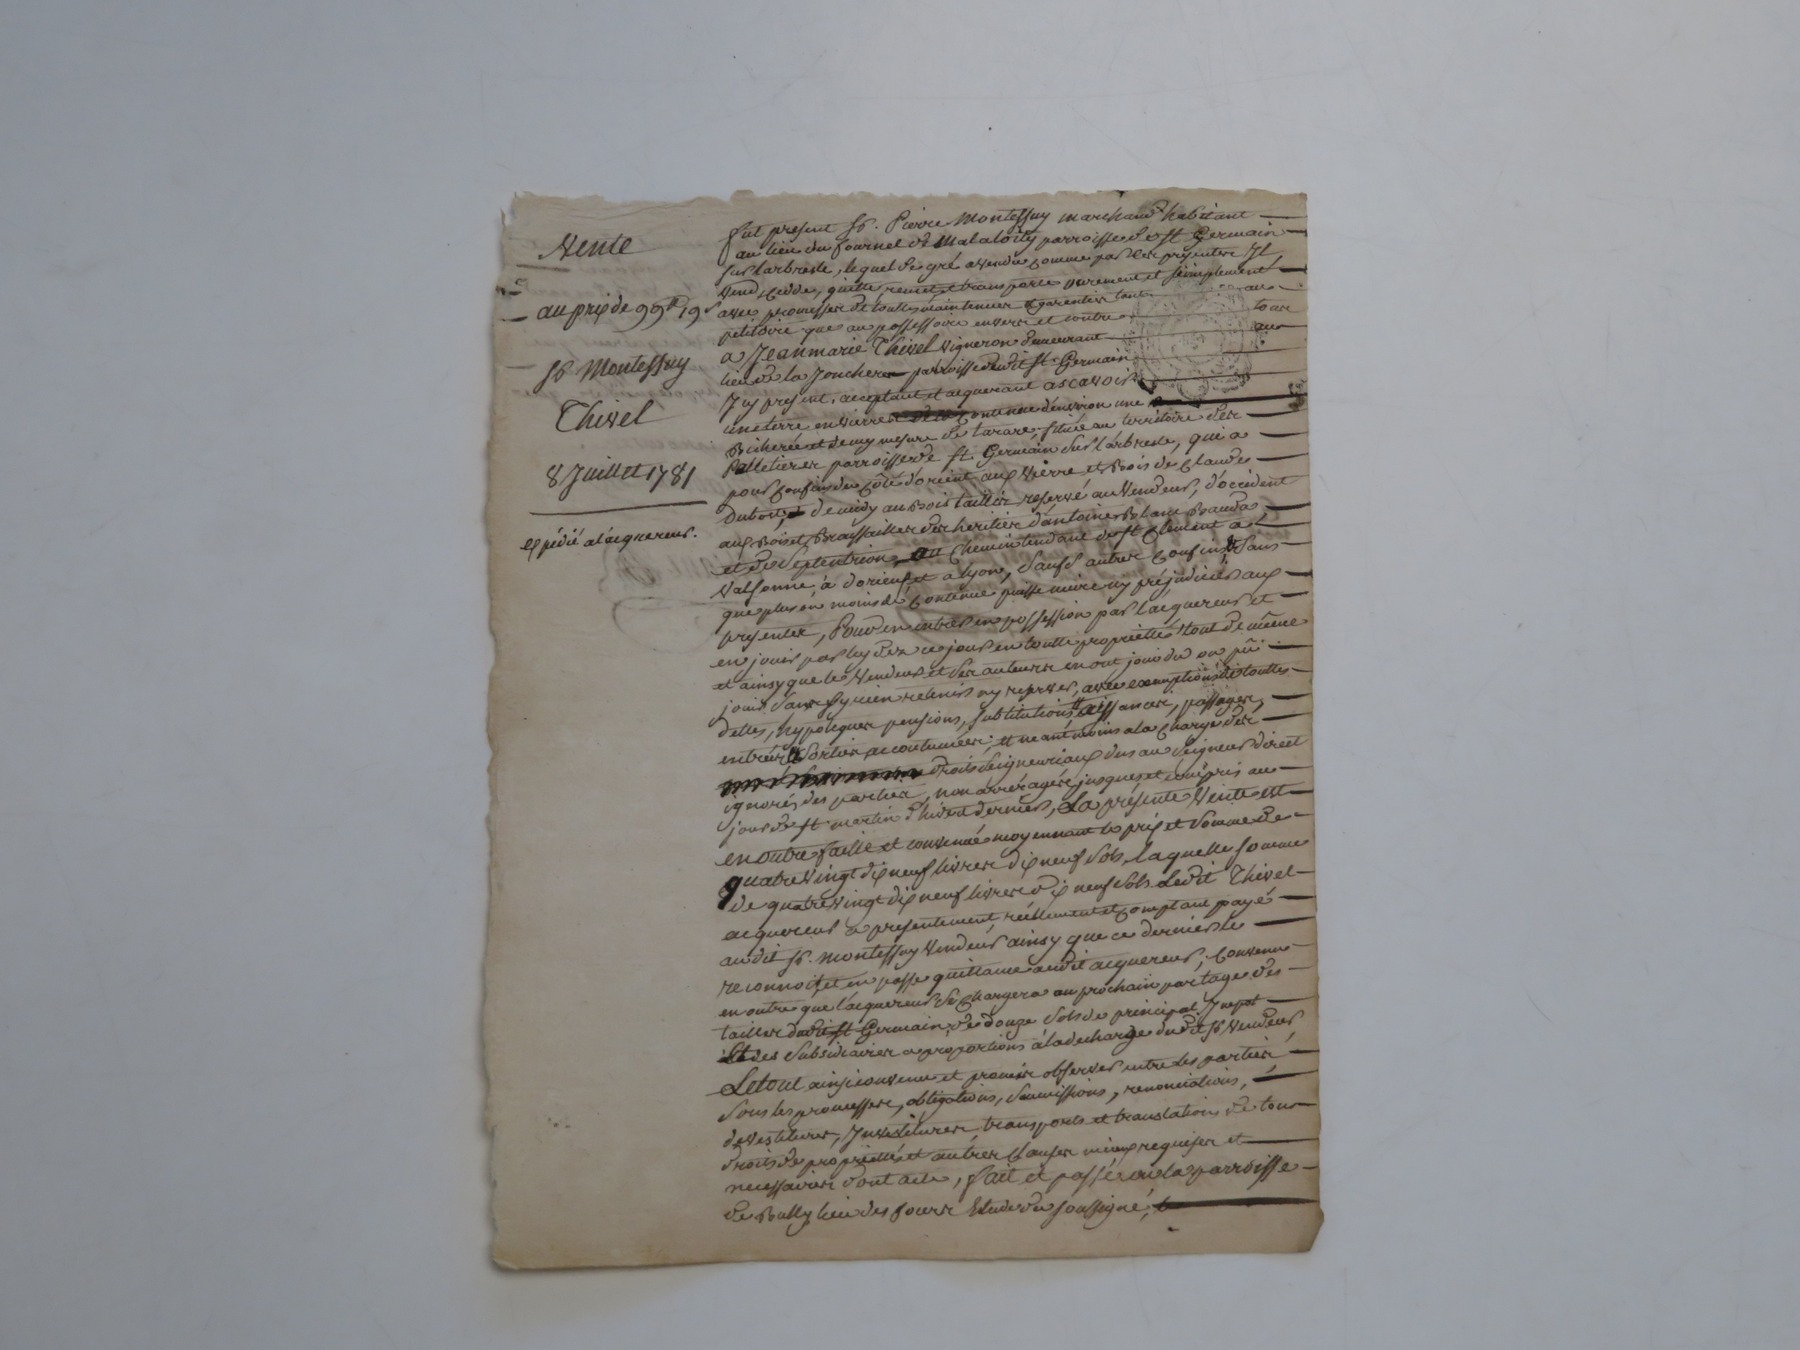 Vente
au prix de 99ᵗᵗ 19ˢ
Sʳ. Montessuy
Thivel
8 Juillet 1781
expédié a lacquereur.
fut présent Sʳ. Pierre Montessuy marchand habitant
au lieu du fournel de parroisse de St Germain
sur larbresle, lequel de gré a vendu comme par ces présentes Il
vend, cedde, quitte remet et transporte purement et simplement
avec promesse de toutes maintenue et garentie tant au
petitoire que au possessoire envers et contre tous
a Jeanmarie Thivel vigneron demeurant au
lieu de la Joncherre parroisse dudit St. Germain
Icy présent, acceptant et acquerant ascavoir
une terre en contenue d'environ une
Bicherée et demy mesure de tarare, située au territoire des
Pelletieres parroisse de St. Germain sur l'arbresle, qui a
pour confins du côté d'orient aux et Bois de Claude
Dubost, de midy au Bois taillis réservé au Vendeur, d'occident
aux Bois et Broussailles des heritiers d'antoine Blanc
et de Septentrion, au Chemin tendant de St Clement a
Valsonne, à et a lyon, Saufs autres Confins Sans
que plus ou moins de Contenue puisse nuire ny préjudicier aux
presentes, Pour en entrer en possession par l'acquereur et
en jouir par luy dez ce jour en toutte propriété tout de même
et ainsy que le Vendeur et Ses auteurs en ont joui du ou pû
jouir Sans y rien retenir ny reserver, avec exemptions de touttes
dettes, hypotèques pensions, Substitutions aissances, passages,
entrées Sorties accoutumées; et neantmoins a la Charge des
droits Seigneuriaux dus au Seigneur direct
ignorés des parties, non arréragés jusques et compris au
jour de St martin d'hivert dernier, La présente Vente est
en outre faitte et convenue moyennant le prix et Somme de
quatrevingt dix neuf livres dix neuf Sols, laquelle Somme
de quatrevingt dix neuf livres dix neuf Sols Ledit Thivel
acquereur a présentement, réellement et Comptant payé
audit Sʳ. Montessuy Vendeur ainsy que ce dernier le
reconnoit, et en passe quittance audit acquereur, Convenu
en outre que l'acquereur Se Chargera au prochain partage des
tailles dudit St Germain, de douze Sols de principal Impot
et des Subsidiaires a proportions à la decharge dudit Sʳ Vendeur
Le tout ainsi convenu et promis observer entre les parties
Sous les promesses, obligations, Soumissions, renonciations,
devestitures, Investitures, transports et translations de tous
droits de propriété et autres Clauses requises et
necessaires dont acte, fait et passé en la parroisse
de Bully lieu des fours Etude du soussigné,